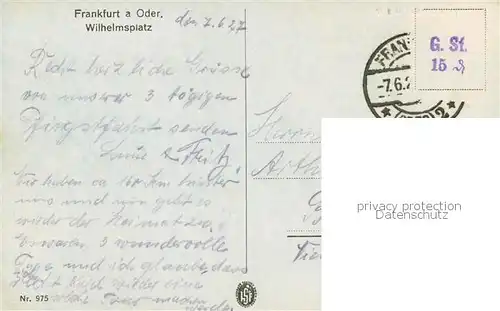 Frankfurt a Oder,
Wilhelmsplatz
den 7.6.27
Recht herzliche Grüsse
von unserer 3 tägigen
Pfingstfahrt senden
Fritz
Wir haben ca 160 km hinter
uns und nun geht es
wieder der Heimat zu.
Es waren 3 wundervolle
Tage und ich glaube, dass
wieder eine
solche Tour machen
werden
Nr. 975
FRAN
-7.6.2
2
G. St.
15 ₰
Herrn
Arth
privacy protection
Datenschutz